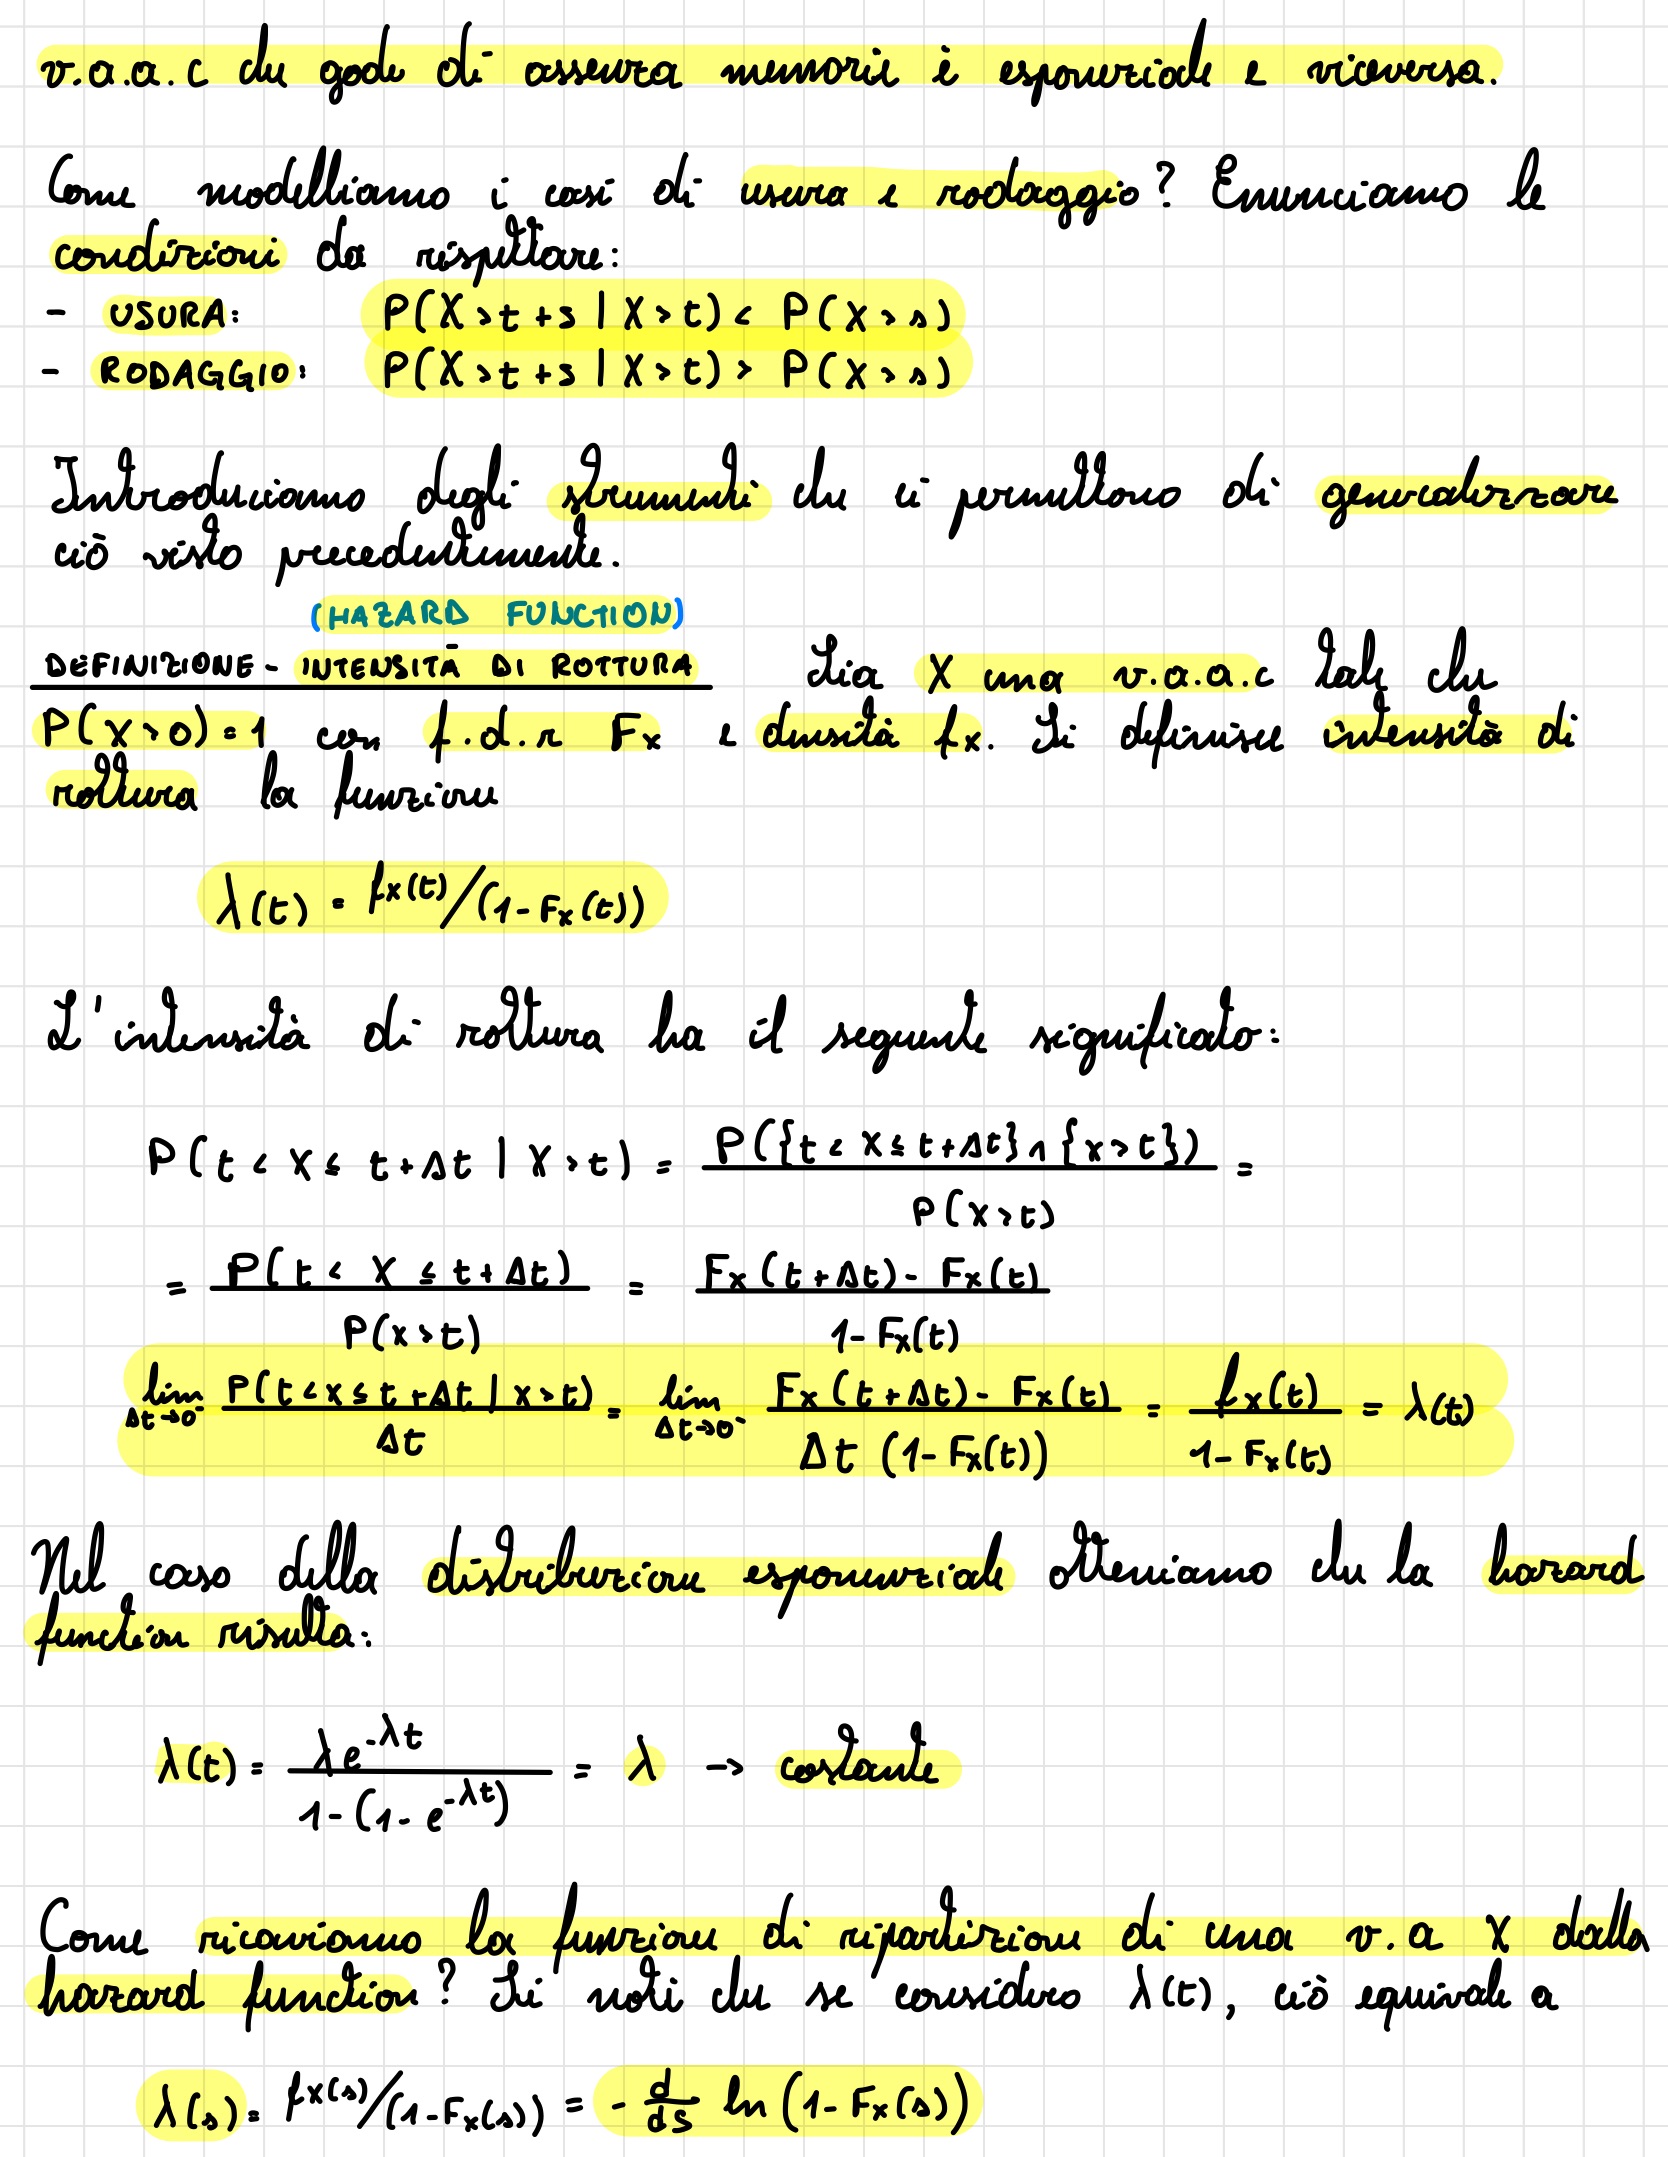 v.a.a.c che gode di assenza memoria è esponenziale e viceversa.
Come modelliamo i casi di usura e rodaggio? Enunciamo le
condizioni da rispettare:
- USURA: P(X>t+s | X>t) < P(X>s)
- RODAGGIO: P(X>t+s | X>t) > P(X>s)
Introduciamo degli strumenti che ci permettono di generalizzare
ciò visto precedentemente.
(HAZARD FUNCTION)
DEFINIZIONE - INTENSITÀ DI ROTTURA Sia X una v.a.a.c tale che
P(X>0)=1 con f.d.r Fx e densità fx. Si definisce intensità di
rottura la funzione
λ(t) = fx(t)/(1-Fx(t))
L'intensità di rottura ha il seguente significato:
P(t < X ≤ t+Δt | X>t) = P({t < X ≤ t+Δt} ∩ {X>t}) / P(X>t) =
= P(t < X ≤ t+Δt) / P(X>t) = Fx(t+Δt) - Fx(t) / 1-Fx(t)
lim Δt→0⁻ P(t<X≤t+Δt | X>t) / Δt = lim Δt→0⁻ Fx(t+Δt) - Fx(t) / Δt (1-Fx(t)) = fx(t) / 1-Fx(t) = λ(t)
Nel caso della distribuzione esponenziale otteniamo che la hazard
function risulta:
λ(t) = λe^-λt / 1-(1-e^-λt) = λ → costante
Come ricaviamo la funzione di ripartizione di una v.a X dalla
hazard function? Si noti che se considero λ(t), ciò equivale a
λ(s) = fx(s)/(1-Fx(s)) = - d/ds ln(1-Fx(s))